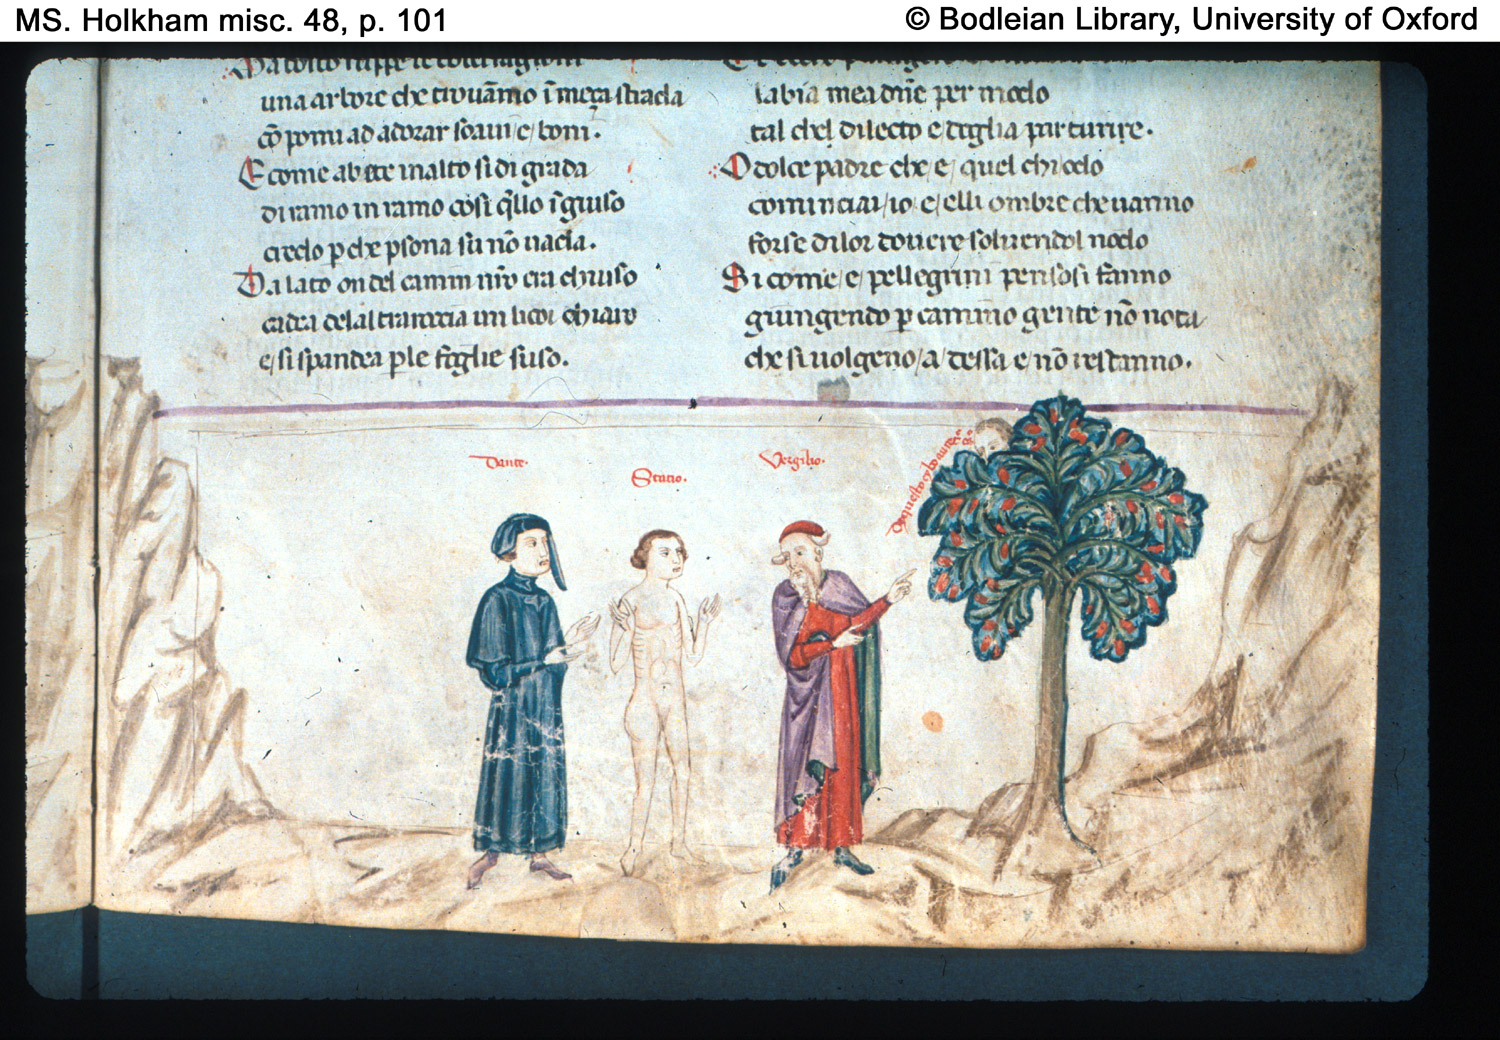 MS. Holkham misc. 48, p. 101
© Bodleian Library, University of Oxford
una arbore che trouāmo ī meça strada
cō pomi ad adorar soaui e boni.
E come abete in alto si di grada
di ramo in ramo cosi q̄llo ī giuso
credo p che psona su nō uada.
Da lato on del camin nr̄o era chiuso
cadea de lalta roccia un licor chiaro
e si spandea p le foglie suso.
labia mea dn̄e per modo
tal chel dilecto e doglia parturire.
O dolce padre che e quel chi odo
cominciai io e elli ombre che uanno
forse di lor douere soluendol nodo
Si come e pellegrini pensosi fanno
giungendo p camino gente nō nota
che si uolgeno a dessa e nō restanno.
Dante.
Statio.
Vergilio.